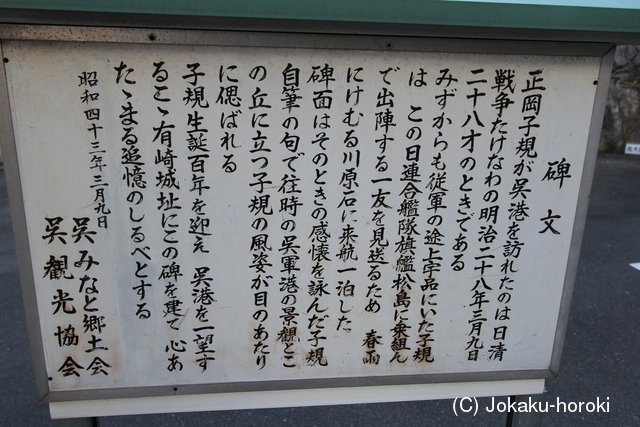 碑文
正岡子規が呉港を訪れたのは日清
戦争たけなわの明治二十八年三月九日
二十八才のときである
みずからも従軍の途上宇品にいた子規
は この日連合艦隊旗艦松島に乗組ん
で出陣する一友を見送るため 春雨
にけむる川原石に来航一泊した
碑面はそのときの感懐を詠んだ子規
自筆の句で往時の呉軍港の景観とこ
の丘に立つ子規の風姿が目のあたり
に偲ばれる
子規生誕百年を迎え 呉港を一望す
るこゝ有崎城址にこの碑を建て 心あ
たゝまる追憶のしるべとする
昭和四十三年三月九日
呉みなと郷土会
呉観光協会
(C) Jokaku-horoki